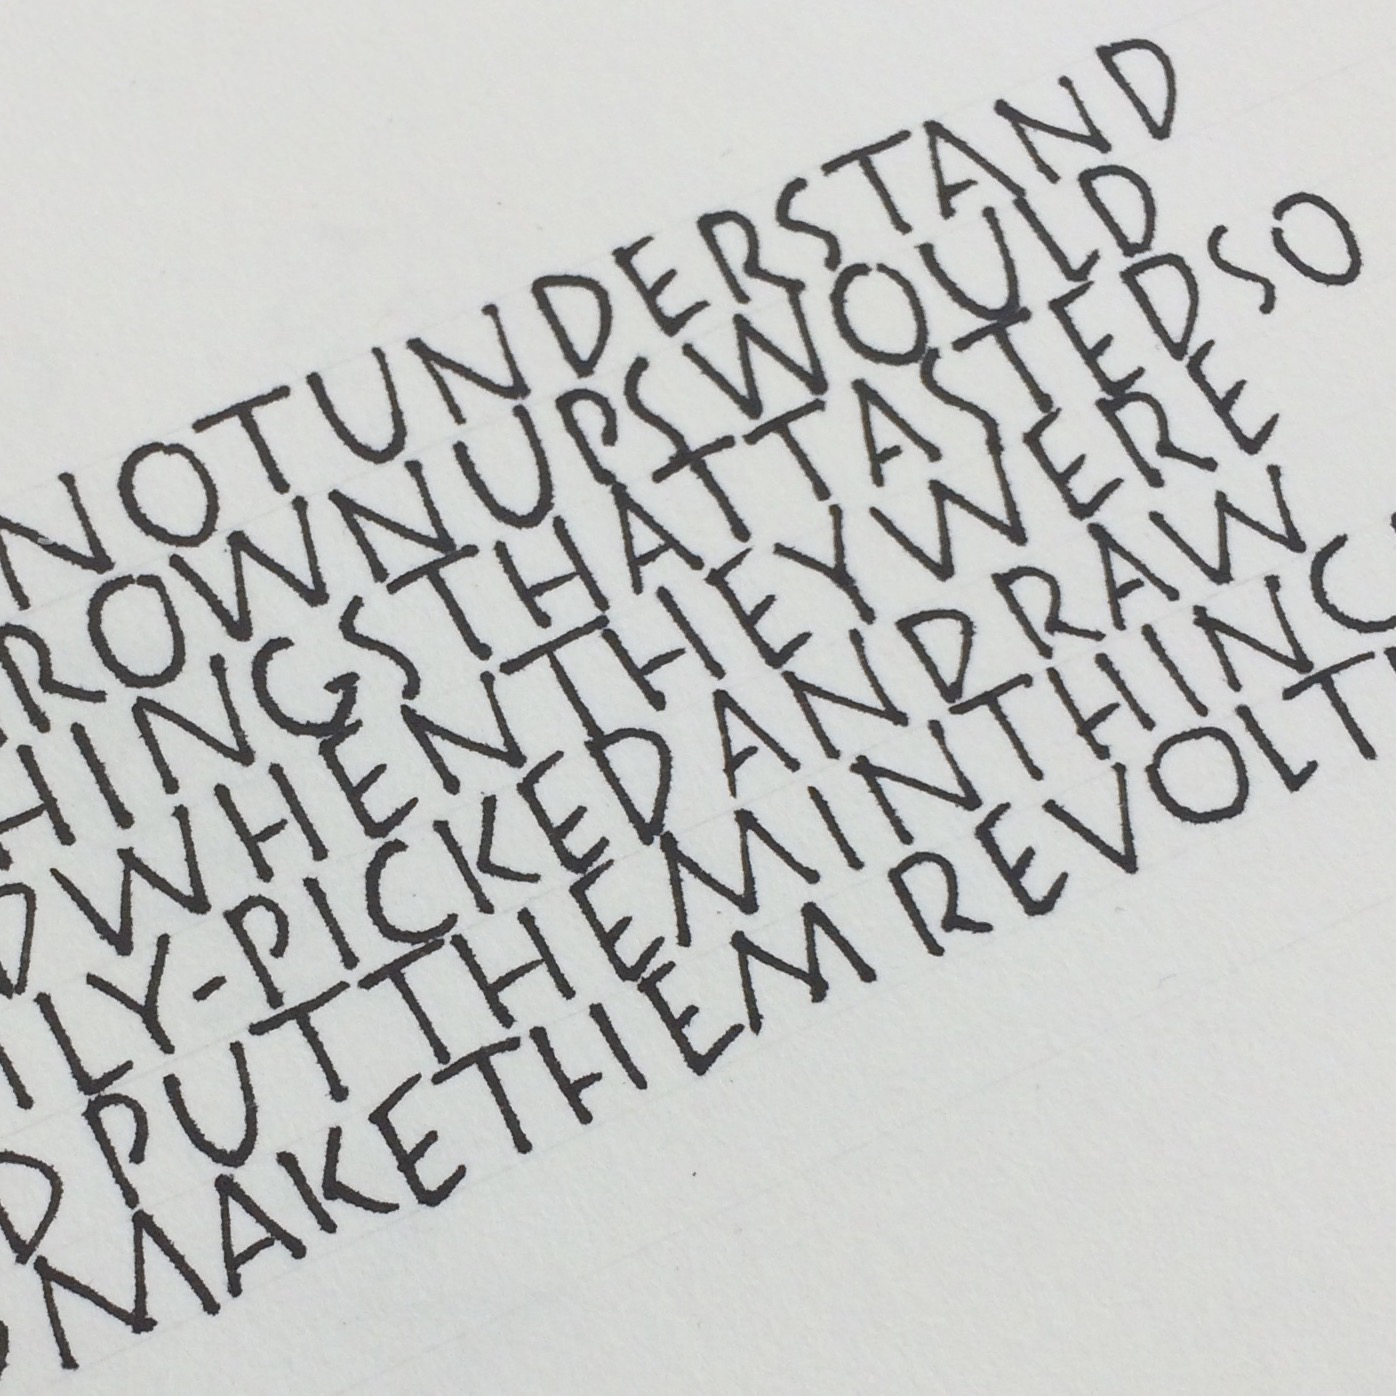 NOT UNDERSTAND
GROWNUPS WOULD
THINGS THAT TASTED SO
WHEN THEY WERE
-PICKED AND RAW
PUT THEM IN THIN
MAKE THEM REVOLT